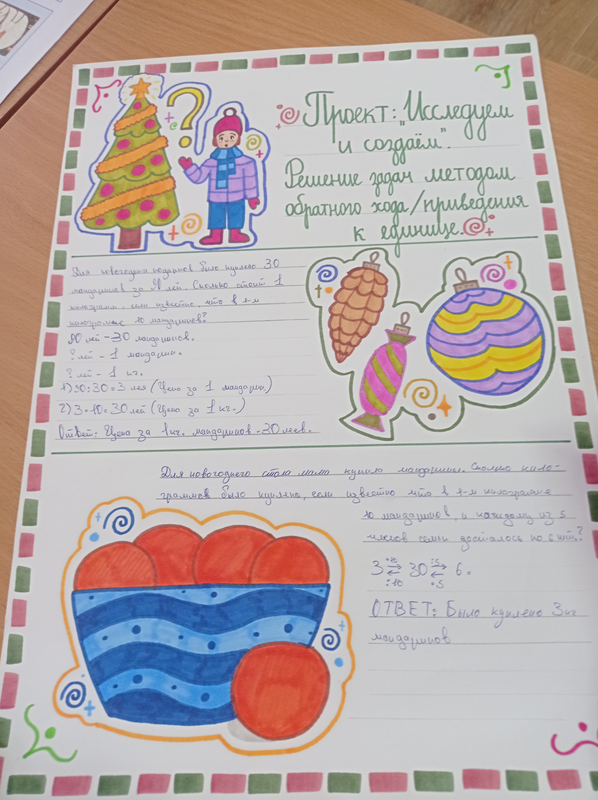 Проект: "Исследуем
и создаём".
Решение задач методом
обратного хода/приведения
к единице.
Для новогодних подарков было куплено 30
мандаринов за 90 лей. Сколько стоит 1
килограмм, если известно, что в 1-м
килограмме 10 мандаринов?
90 лей - 30 мандаринов.
? лей - 1 мандарин.
? лей - 1 кг.
1) 90:30=3 лея (Цена за 1 мандарин)
2) 3·10=30 лей (Цена за 1 кг.)
Ответ: Цена за 1 кг. мандаринов - 30 леев.
Для новогоднего стола мама купила мандарины. Сколько кило-
граммов было куплено, если известно что в 1-м килограмме
10 мандаринов, и каждому из 5
членов семьи досталось по 6 манд.?
3 ⇄ 30 ⇄ 6.
:10 ·5
ОТВЕТ: Было куплено 3 кг
мандаринов